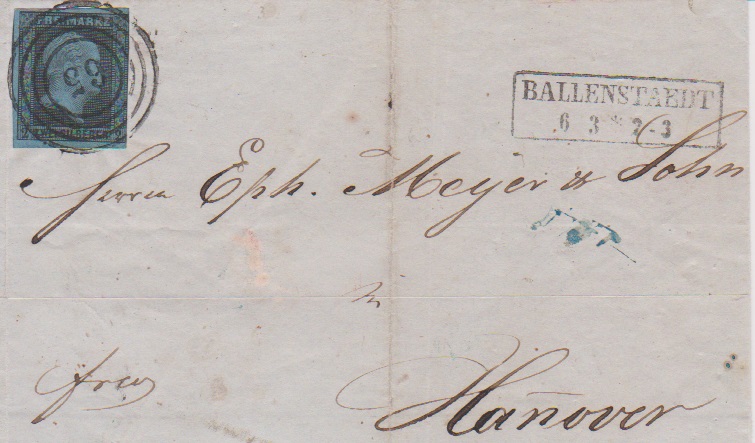 FREIMARKE
55
BALLENSTAEDT
6 3 * 2-3
Herren Eph. Meyer & Sohn
in
frey
Hañover